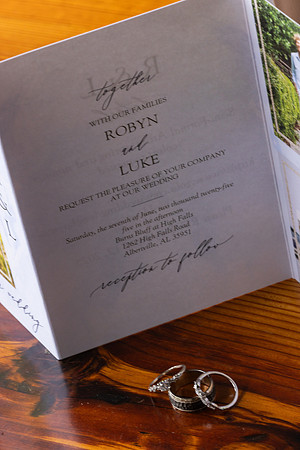 together
WITH OUR FAMILIES
ROBYN
and
LUKE
REQUEST THE PLEASURE OF YOUR COMPANY
AT OUR WEDDING
Saturday, the seventh of June, two thousand twenty-five
five in the afternoon
Burns Bluff at High Falls
1262 High Falls Road
Albertville, AL 35951
reception to follow
wedding